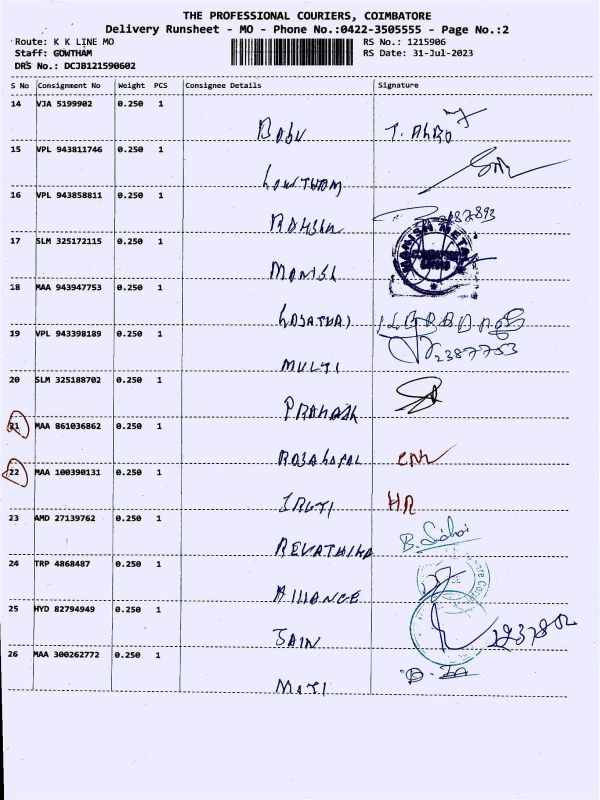 THE PROFESSIONAL COURIERS, COIMBATORE
Delivery Runsheet - MO - Phone No.:0422-3505555 - Page No.:2
Route: K K LINE MO RS No.: 1215906
Staff: GOWTHAM RS Date: 31-Jul-2023
DRS No.: DCJB121590602
S No Consignment No Weight PCS Consignee Details Signature
14 VJA 5199902 0.250 1
BABU
15 VPL 943811746 0.250 1
GOWTHAM
16 VPL 943858811 0.250 1
17 SLM 325172115 0.250 1
MANISH
18 MAA 943947753 0.250 1
19 VPL 943398189 0.250 1
MULTI 2387753
20 SLM 325188702 0.250 1
PRAKASH
21 MAA 861036862 0.250 1
RAJAGOPAL
22 MAA 100390131 0.250 1
HR
23 AMD 27139762 0.250 1
REVATHIKA
24 TRP 4868487 0.250 1
ALLIANCE
25 HYD 82794949 0.250 1
JAIN
26 MAA 300262772 0.250 1